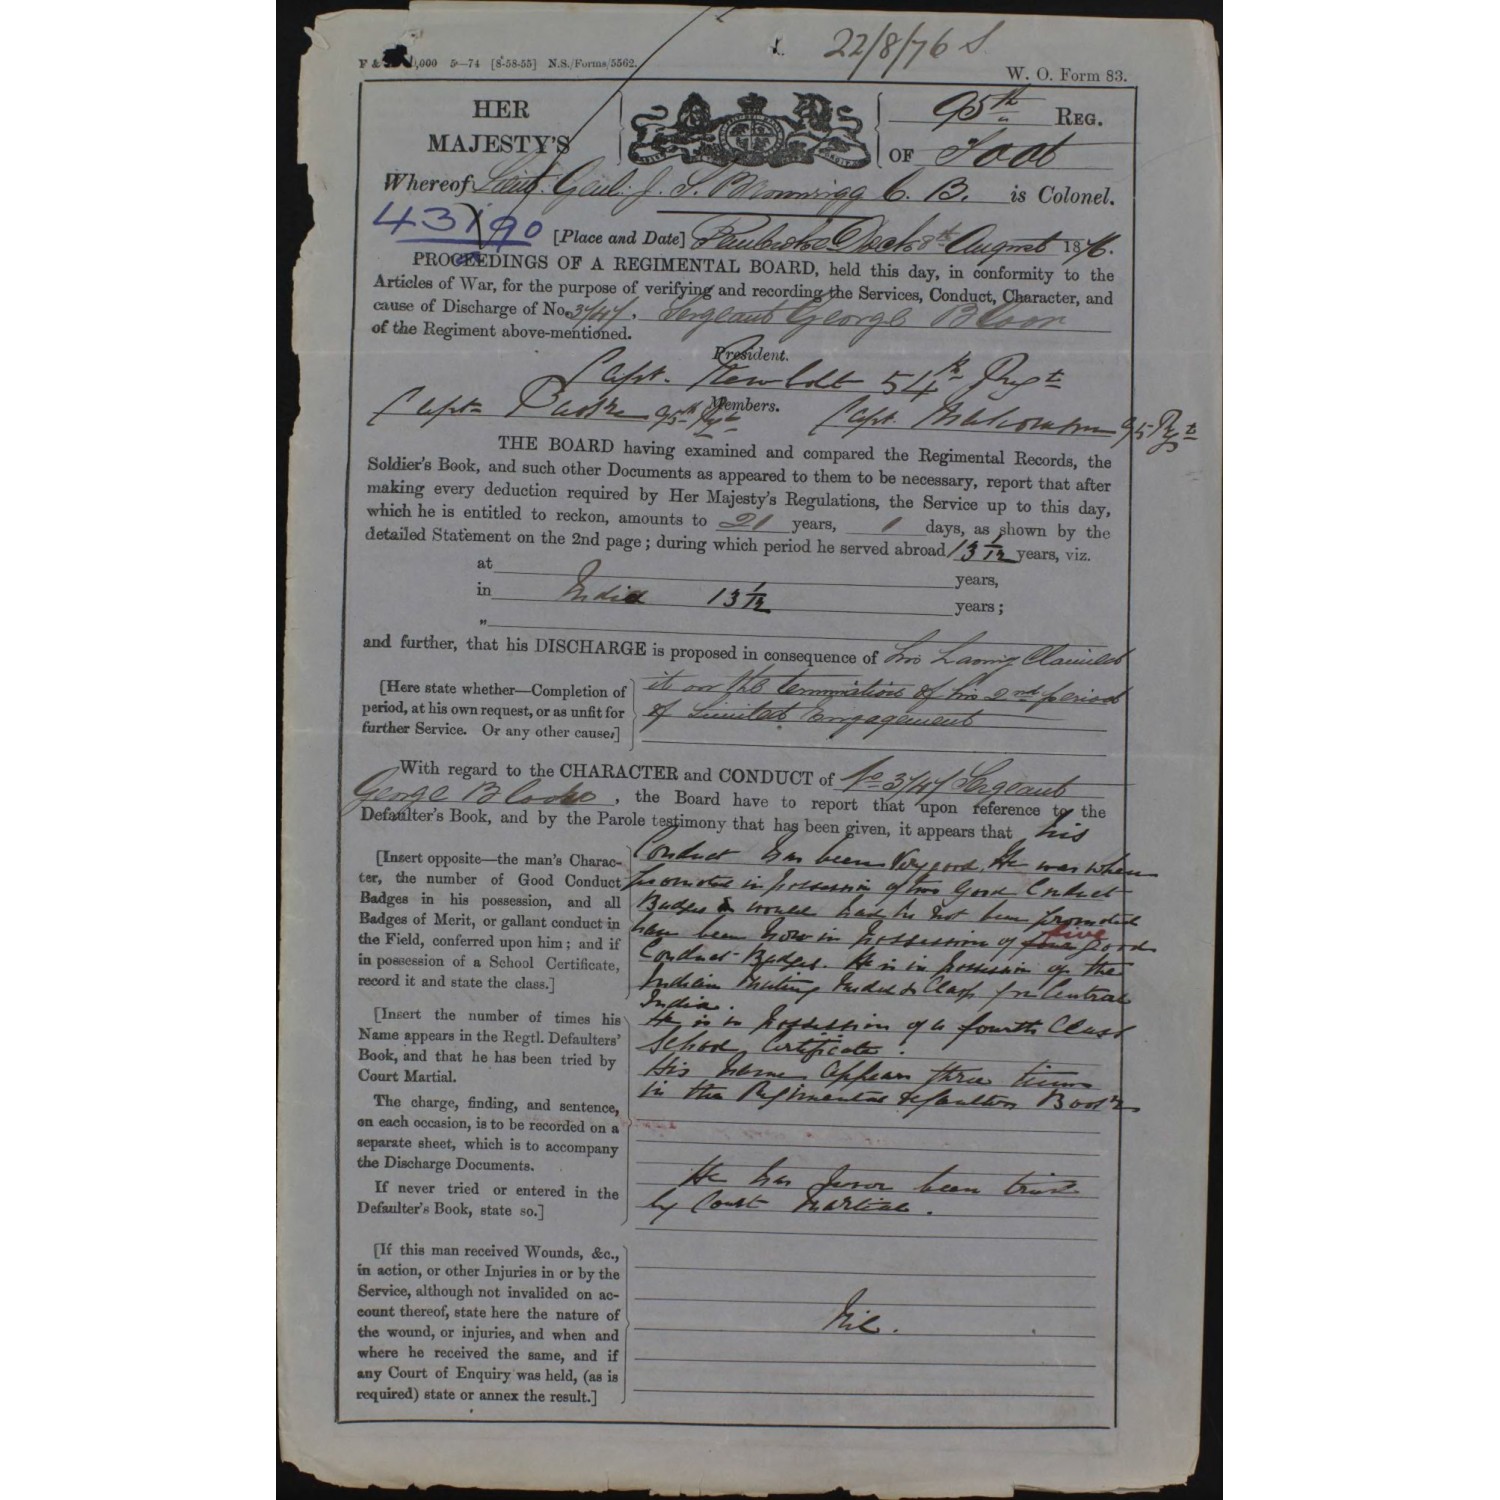 22/8/76 S.
,000 5—74 [8-58-55] N.S./Forms/5562.
W. O. Form 83.
HER
MAJESTY'S
95th REG.
OF Foot
Whereof Lieut. Genl. J. S. Brownrigg C. B. is Colonel.
43190
[Place and Date] Pembroke Dock 8th August 1876.
PROCEEDINGS OF A REGIMENTAL BOARD, held this day, in conformity to the
Articles of War, for the purpose of verifying and recording the Services, Conduct, Character, and
cause of Discharge of No. 3747, Sergeant George Bloor
of the Regiment above-mentioned.
President.
Capt. 54th Regt
Members.
Capt 95th Regt Capt. 95 Regt
THE BOARD having examined and compared the Regimental Records, the
Soldier's Book, and such other Documents as appeared to them to be necessary, report that after
making every deduction required by Her Majesty's Regulations, the Service up to this day,
which he is entitled to reckon, amounts to 21 years, 1 days, as shown by the
detailed Statement on the 2nd page; during which period he served abroad 13 1/12 years, viz.
at years,
in India 13 1/12 years;
„
and further, that his DISCHARGE is proposed in consequence of his having Claimed
[Here state whether—Completion of
period, at his own request, or as unfit for
further Service. Or any other cause.]
it on the termination of his 2nd period
of Limited Engagement
With regard to the CHARACTER and CONDUCT of No 3747 Sergeant
George Bloor, the Board have to report that upon reference to the
Defaulter's Book, and by the Parole testimony that has been given, it appears that his
[Insert opposite—the man's Charac-
ter, the number of Good Conduct
Badges in his possession, and all
Badges of Merit, or gallant conduct in
the Field, conferred upon him; and if
in possession of a School Certificate,
record it and state the class.]
Conduct has been Very good. He was when
promoted in possession of two Good Conduct
Badges & would had he not been promoted
have been now in possession of five Good
Conduct Badges. He is in possession of the
Indian Mutiny Medal & Clasp for Central
India.
He is in possession of a fourth Class
School Certificate.
[Insert the number of times his
Name appears in the Regtl. Defaulters'
Book, and that he has been tried by
Court Martial.
The charge, finding, and sentence,
on each occasion, is to be recorded on a
separate sheet, which is to accompany
the Discharge Documents.
If never tried or entered in the
Defaulter's Book, state so.]
His name appears three times
in the Regimental defaulters Book
He has never been tried
by Court Martial.
[If this man received Wounds, &c.,
in action, or other Injuries in or by the
Service, although not invalided on ac-
count thereof, state here the nature of
the wound, or injuries, and when and
where he received the same, and if
any Court of Enquiry was held, (as is
required) state or annex the result.]
Nil.